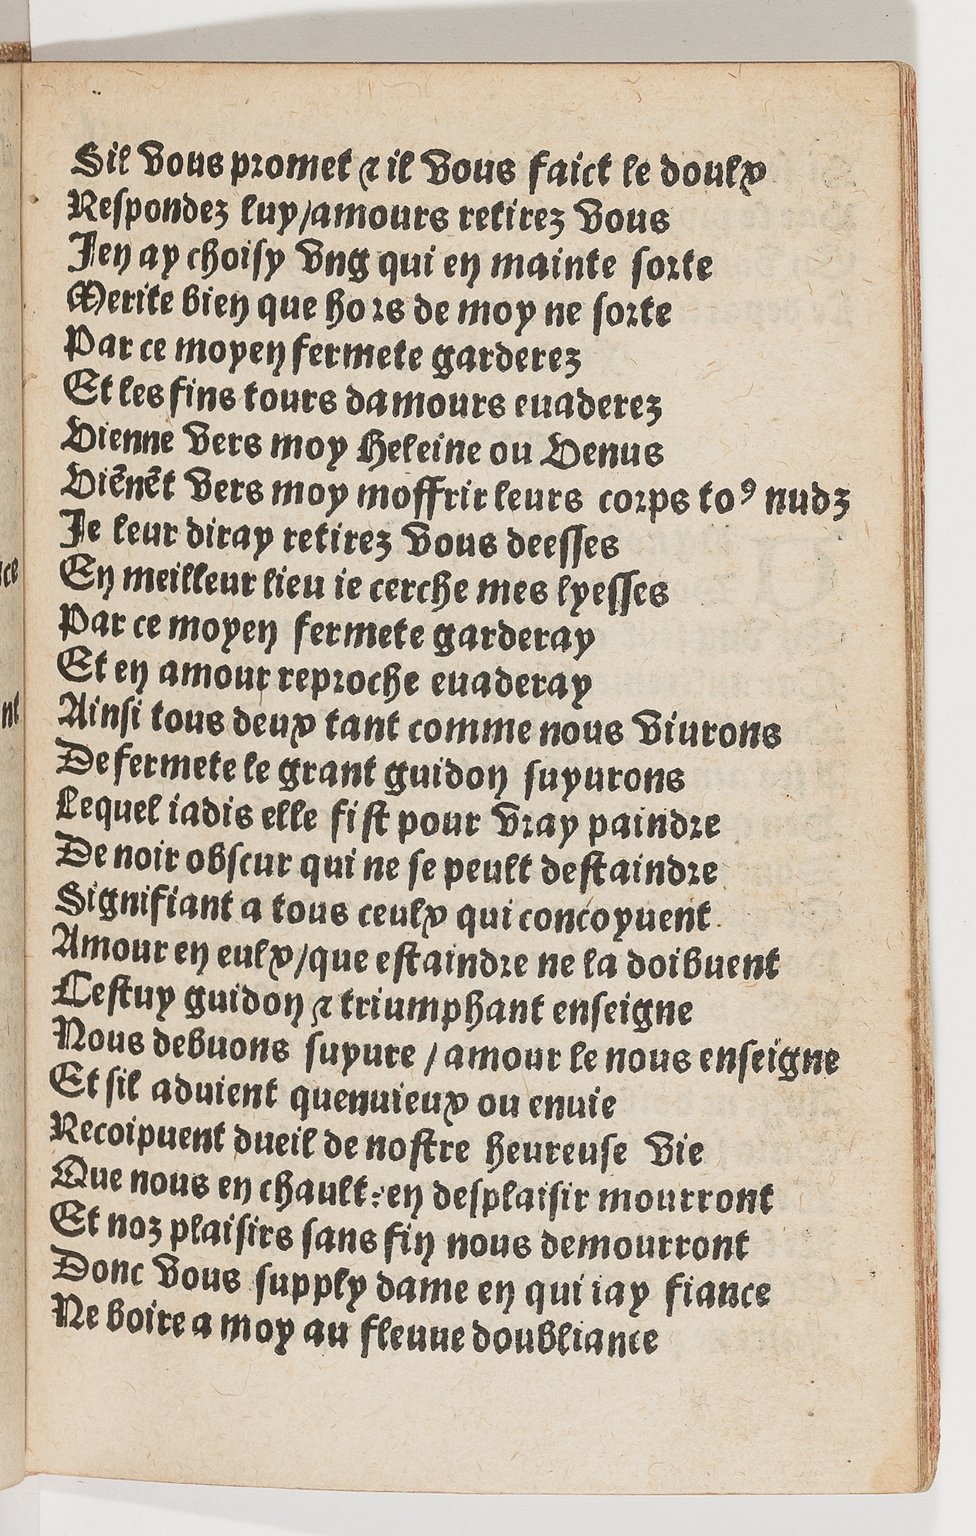 Sil vous promet ⁊ il vous faict le doulx
Respondez luy/amours retirez vous
Jen ay choisy vng qui en mainte sorte
Merite bien que hors de moy ne sorte
Par ce moyen fermete garderez
Et les fins tours damours euaderez
Vienne vers moy Heleine ou Venus
Viēnēt vers moy moffrir leurs corps toꝰ nudz
Je leur diray retirez vous deesses
En meilleur lieu ie cerche mes lyesses
Par ce moyen fermete garderay
Et en amour reproche euaderay
Ainsi tous deux tant comme nous viurons
De fermete le grant guidon suyurons
Lequel iadis elle fist pour vray paindre
De noir obscur qui ne se peult destaindre
Signifiant a tous ceulx qui concoyuent
Amour en eulx/que estaindre ne la doibuent
Cestuy guidon ⁊ triumphant enseigne
Nous debuons suyure / amour le nous enseigne
Et sil aduient quenuieux ou enuie
Recoipuent dueil de nostre heureuse vie
Que nous en chault: en desplaisir mourront
Et noz plaisirs sans fin nous demourront
Donc vous supply dame en qui iay fiance
Ne boire a moy au fleuue doubliance